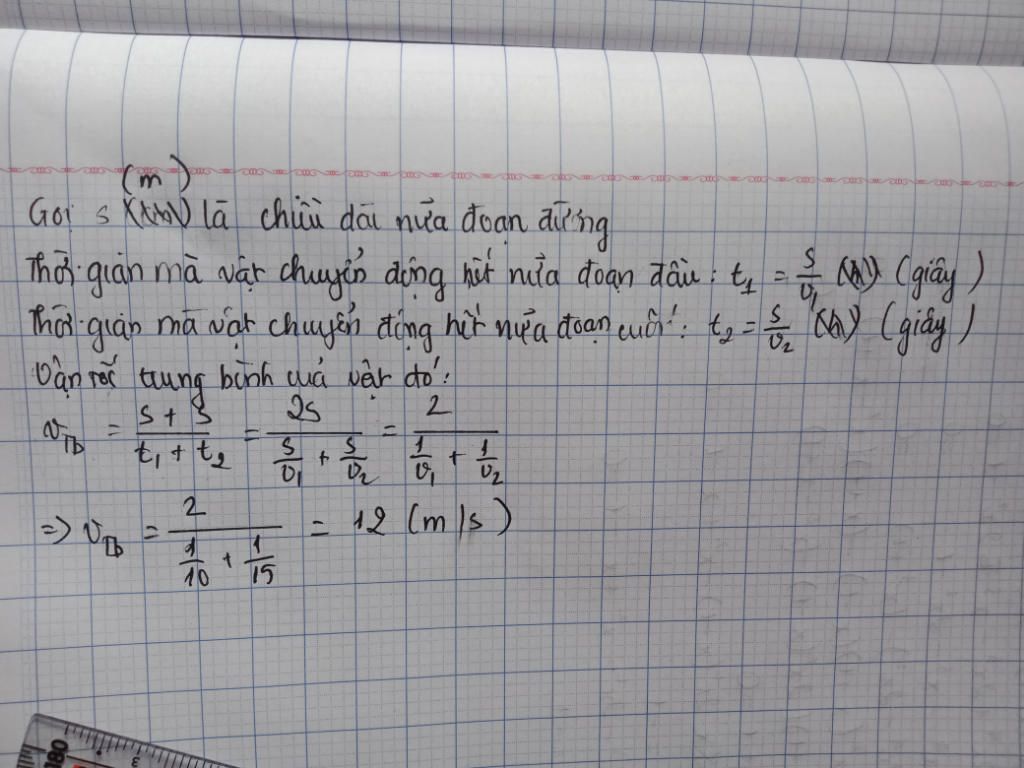 (m)
Gọi s (km) là chiều dài nửa đoạn đường
Thời gian mà vật chuyển động hết nửa đoạn đầu: t₁ = s/v₁ (h) (giây)
Thời gian mà vật chuyển động hết nửa đoạn cuối: t₂ = s/v₂ (h) (giây)
Vận tốc trung bình của vật đó:
v_Tb = (s + s)/(t₁ + t₂) = 2s/(s/v₁ + s/v₂) = 2/(1/v₁ + 1/v₂)
=> v_Tb = 2/(1/10 + 1/15) = 12 (m/s)
180